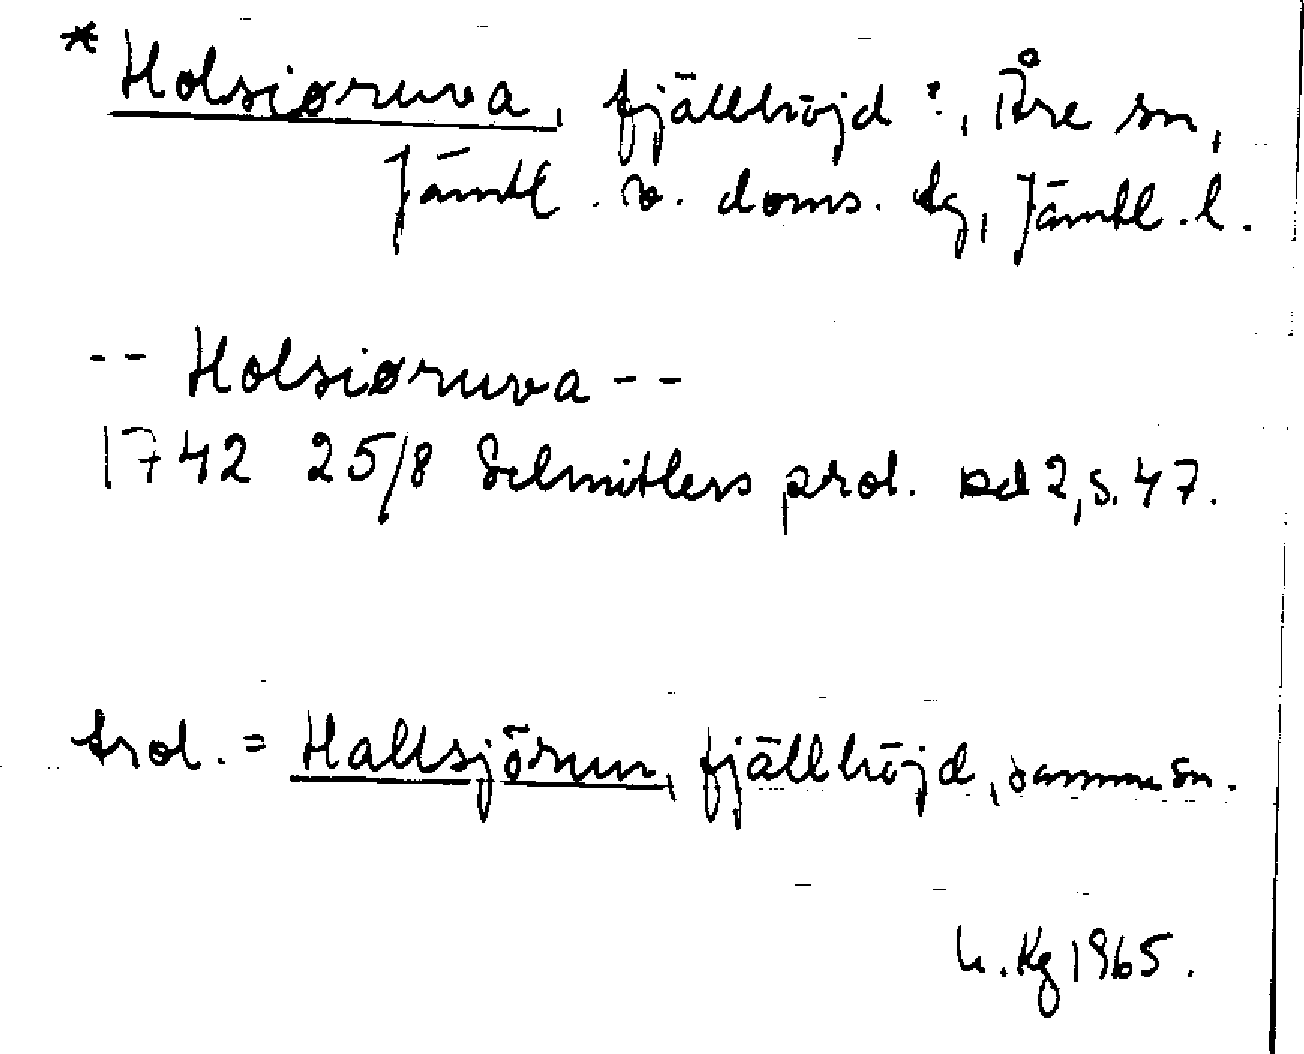 * Holsiøruva, fjällhöjd?, Åre sn,
Jämtl. v. doms. tg, Jämtl. l.
-- Holsiøruva --
1742 25/8 Schnitlers prot. bd 2, s. 47.
trol. = Hallsjörun, fjällhöjd, samma sn.
Kg 1965.